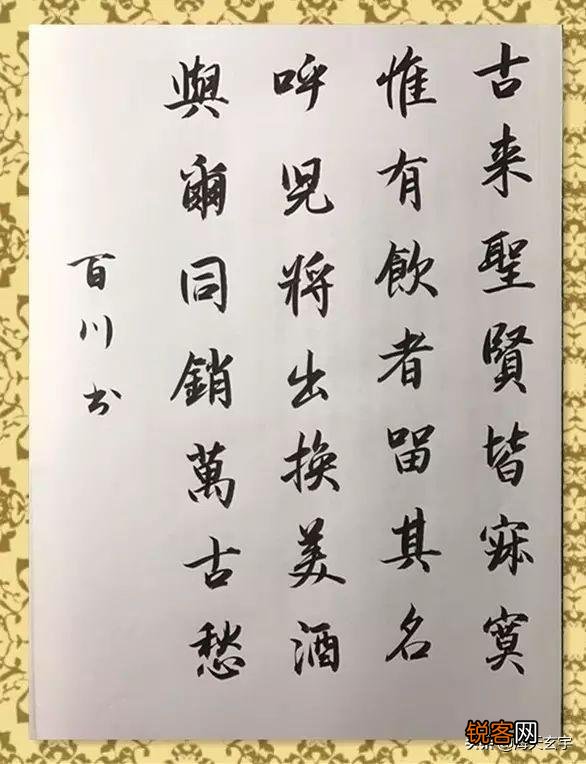 古来聖賢皆寂寞
惟有飲者留其名
呼児將出換美酒
與爾同銷萬古愁
百川书
锐客网
头条@海天玄宇